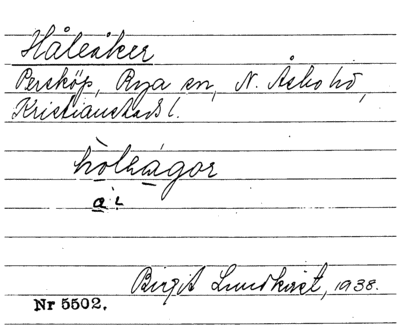 Håleåker
Persköp, Rya sn, N. Åsbo hd,
Kristianstads l.
hòleågor
a:
Birgit Lundkvist, 1938.
Nr 5502.